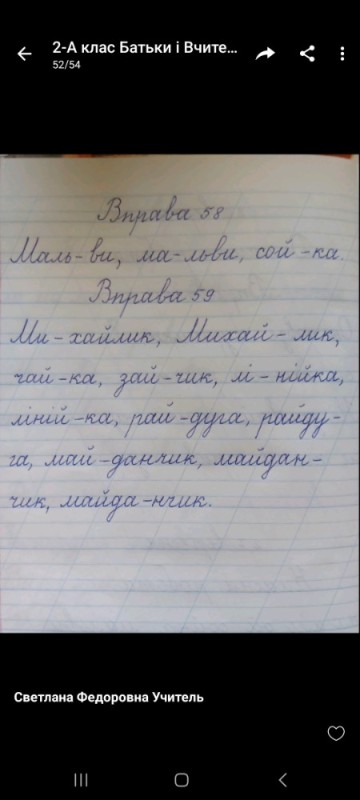 2-А клас Батьки і Вчите...
52/54
Вправа 58
Маль-ви, ма-льви, сой-ка.
Вправа 59
Ми-хайлик, Михай-лик,
чай-ка, зай-чик, лі-нійка,
ліній-ка, рай-дуга, райду-
га, май-данчик, майдан-
чик, майда-нчик.
Светлана Федоровна Учитель